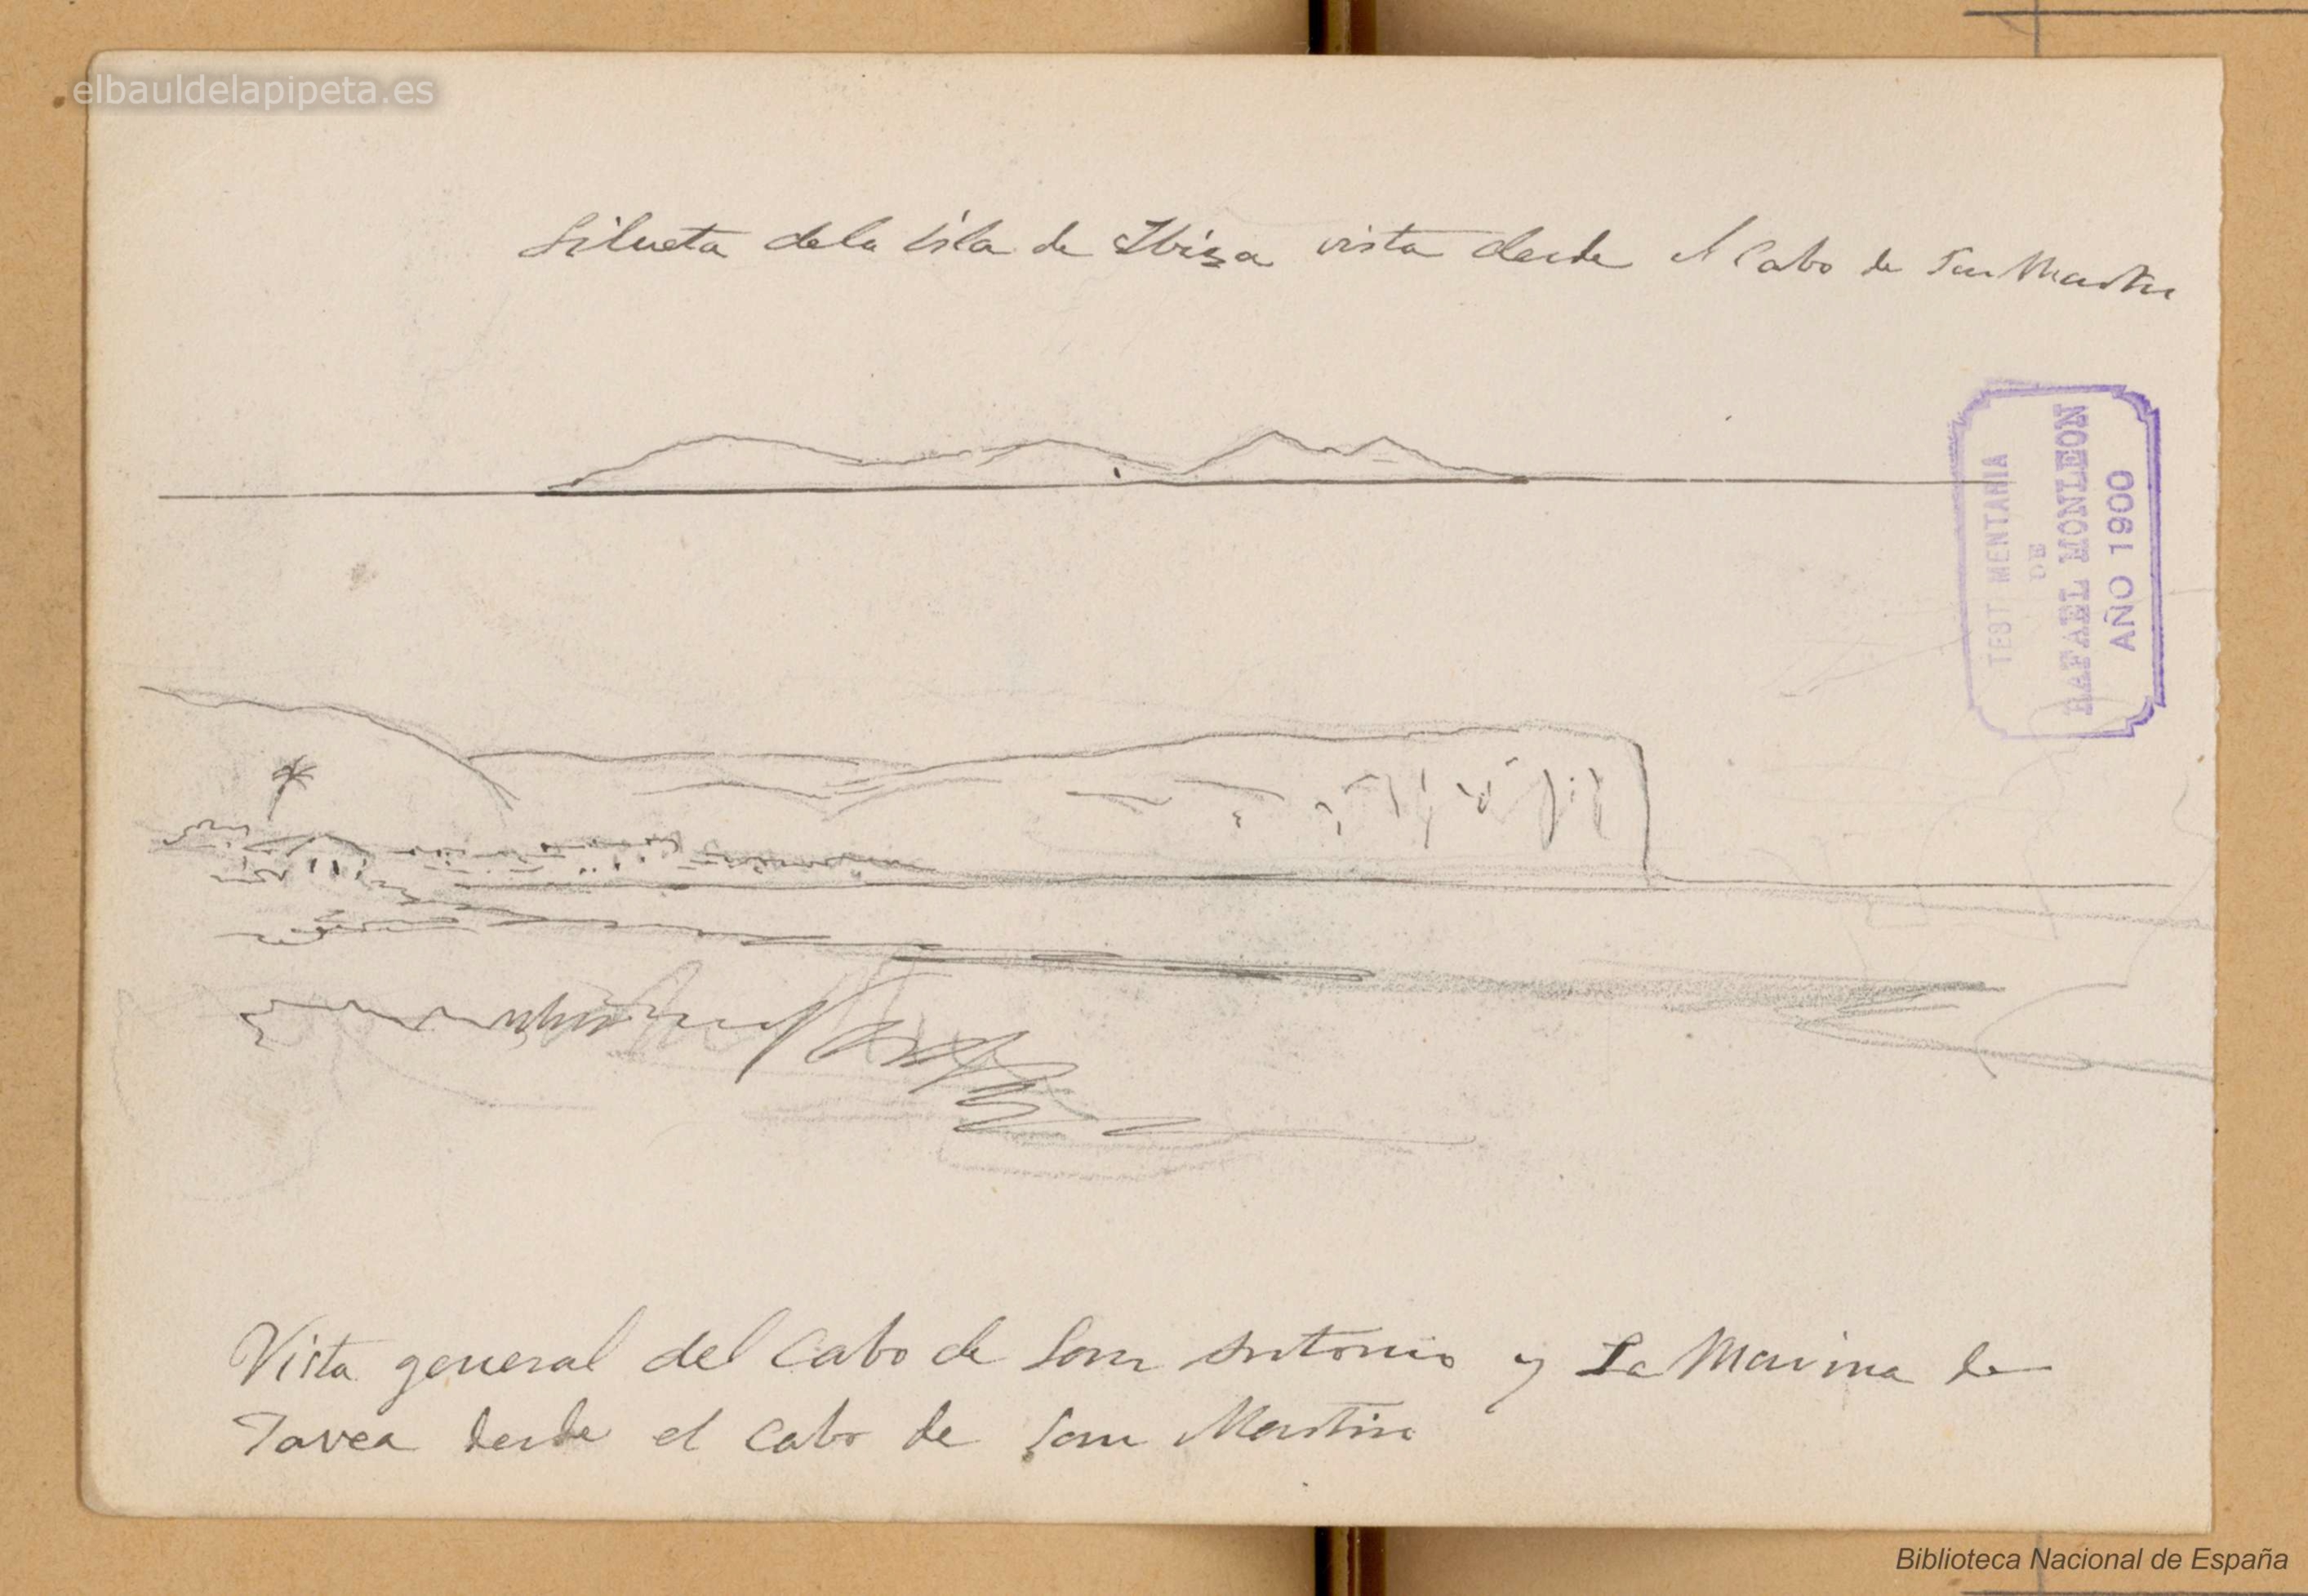 elbauldelapipeta.es
Silueta dela isla de Ibiza vista desde el Cabo de San Martin
TESTAMENTARIA
DE
RAFAEL MONLEON
AÑO 1900
Vista general del Cabo de San Antonio y La Marina de
Javea desde el Cabo de San Martin
Biblioteca Nacional de España